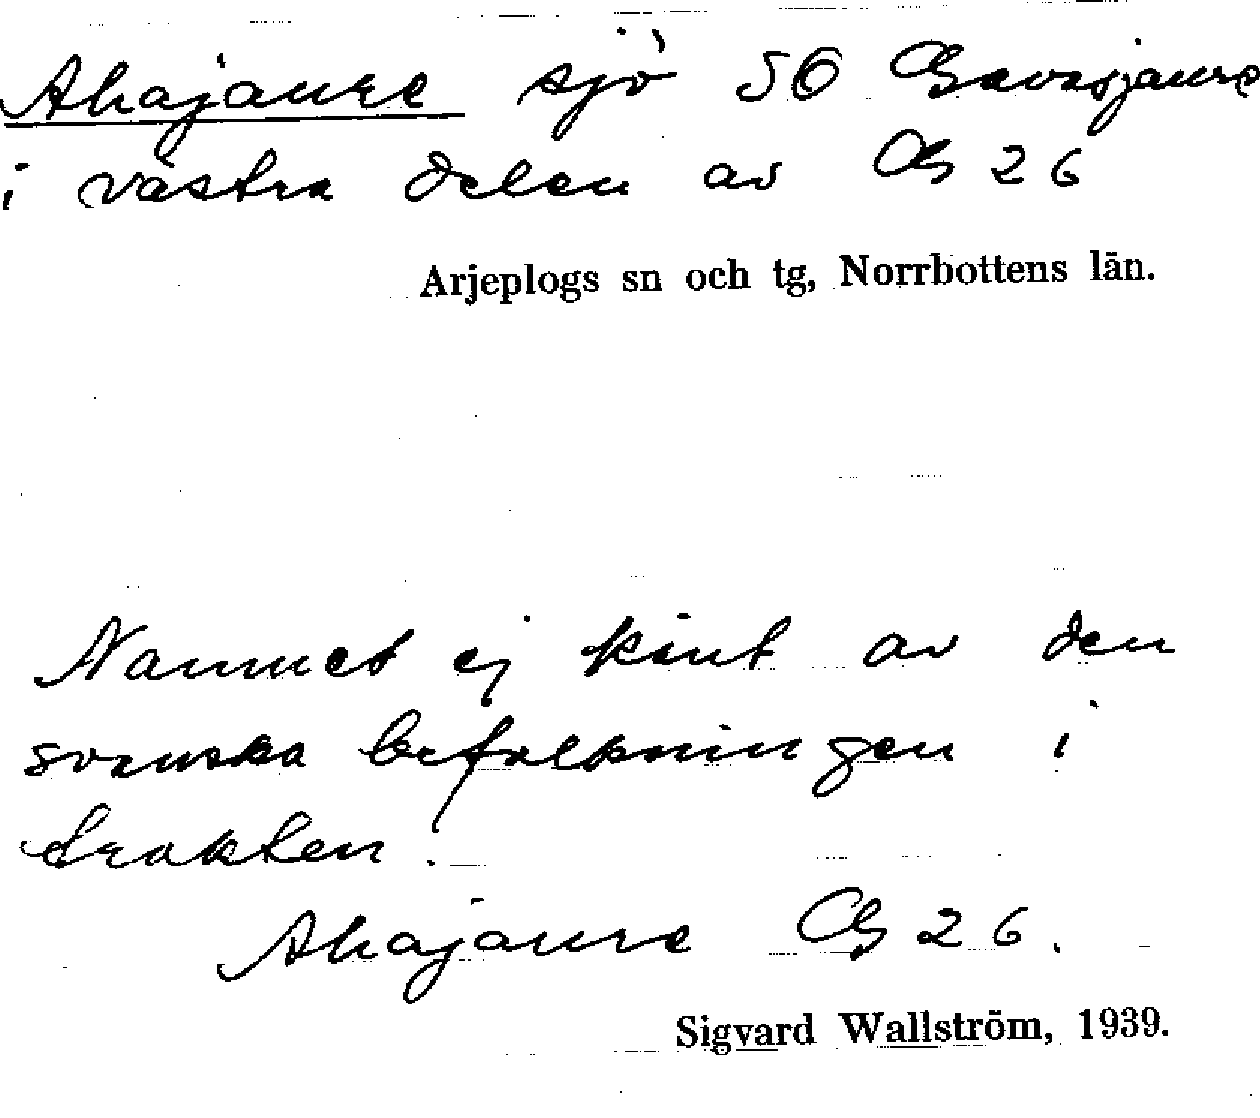 Ahajaure sjö SO Gavasjaure
i västra delen av GB 26
Arjeplogs sn och tg, Norrbottens län.
Namnet ej känt av den
svenska befolkningen i
trakten.
Ahajaure GB 26.
Sigvard Wallström, 1939.